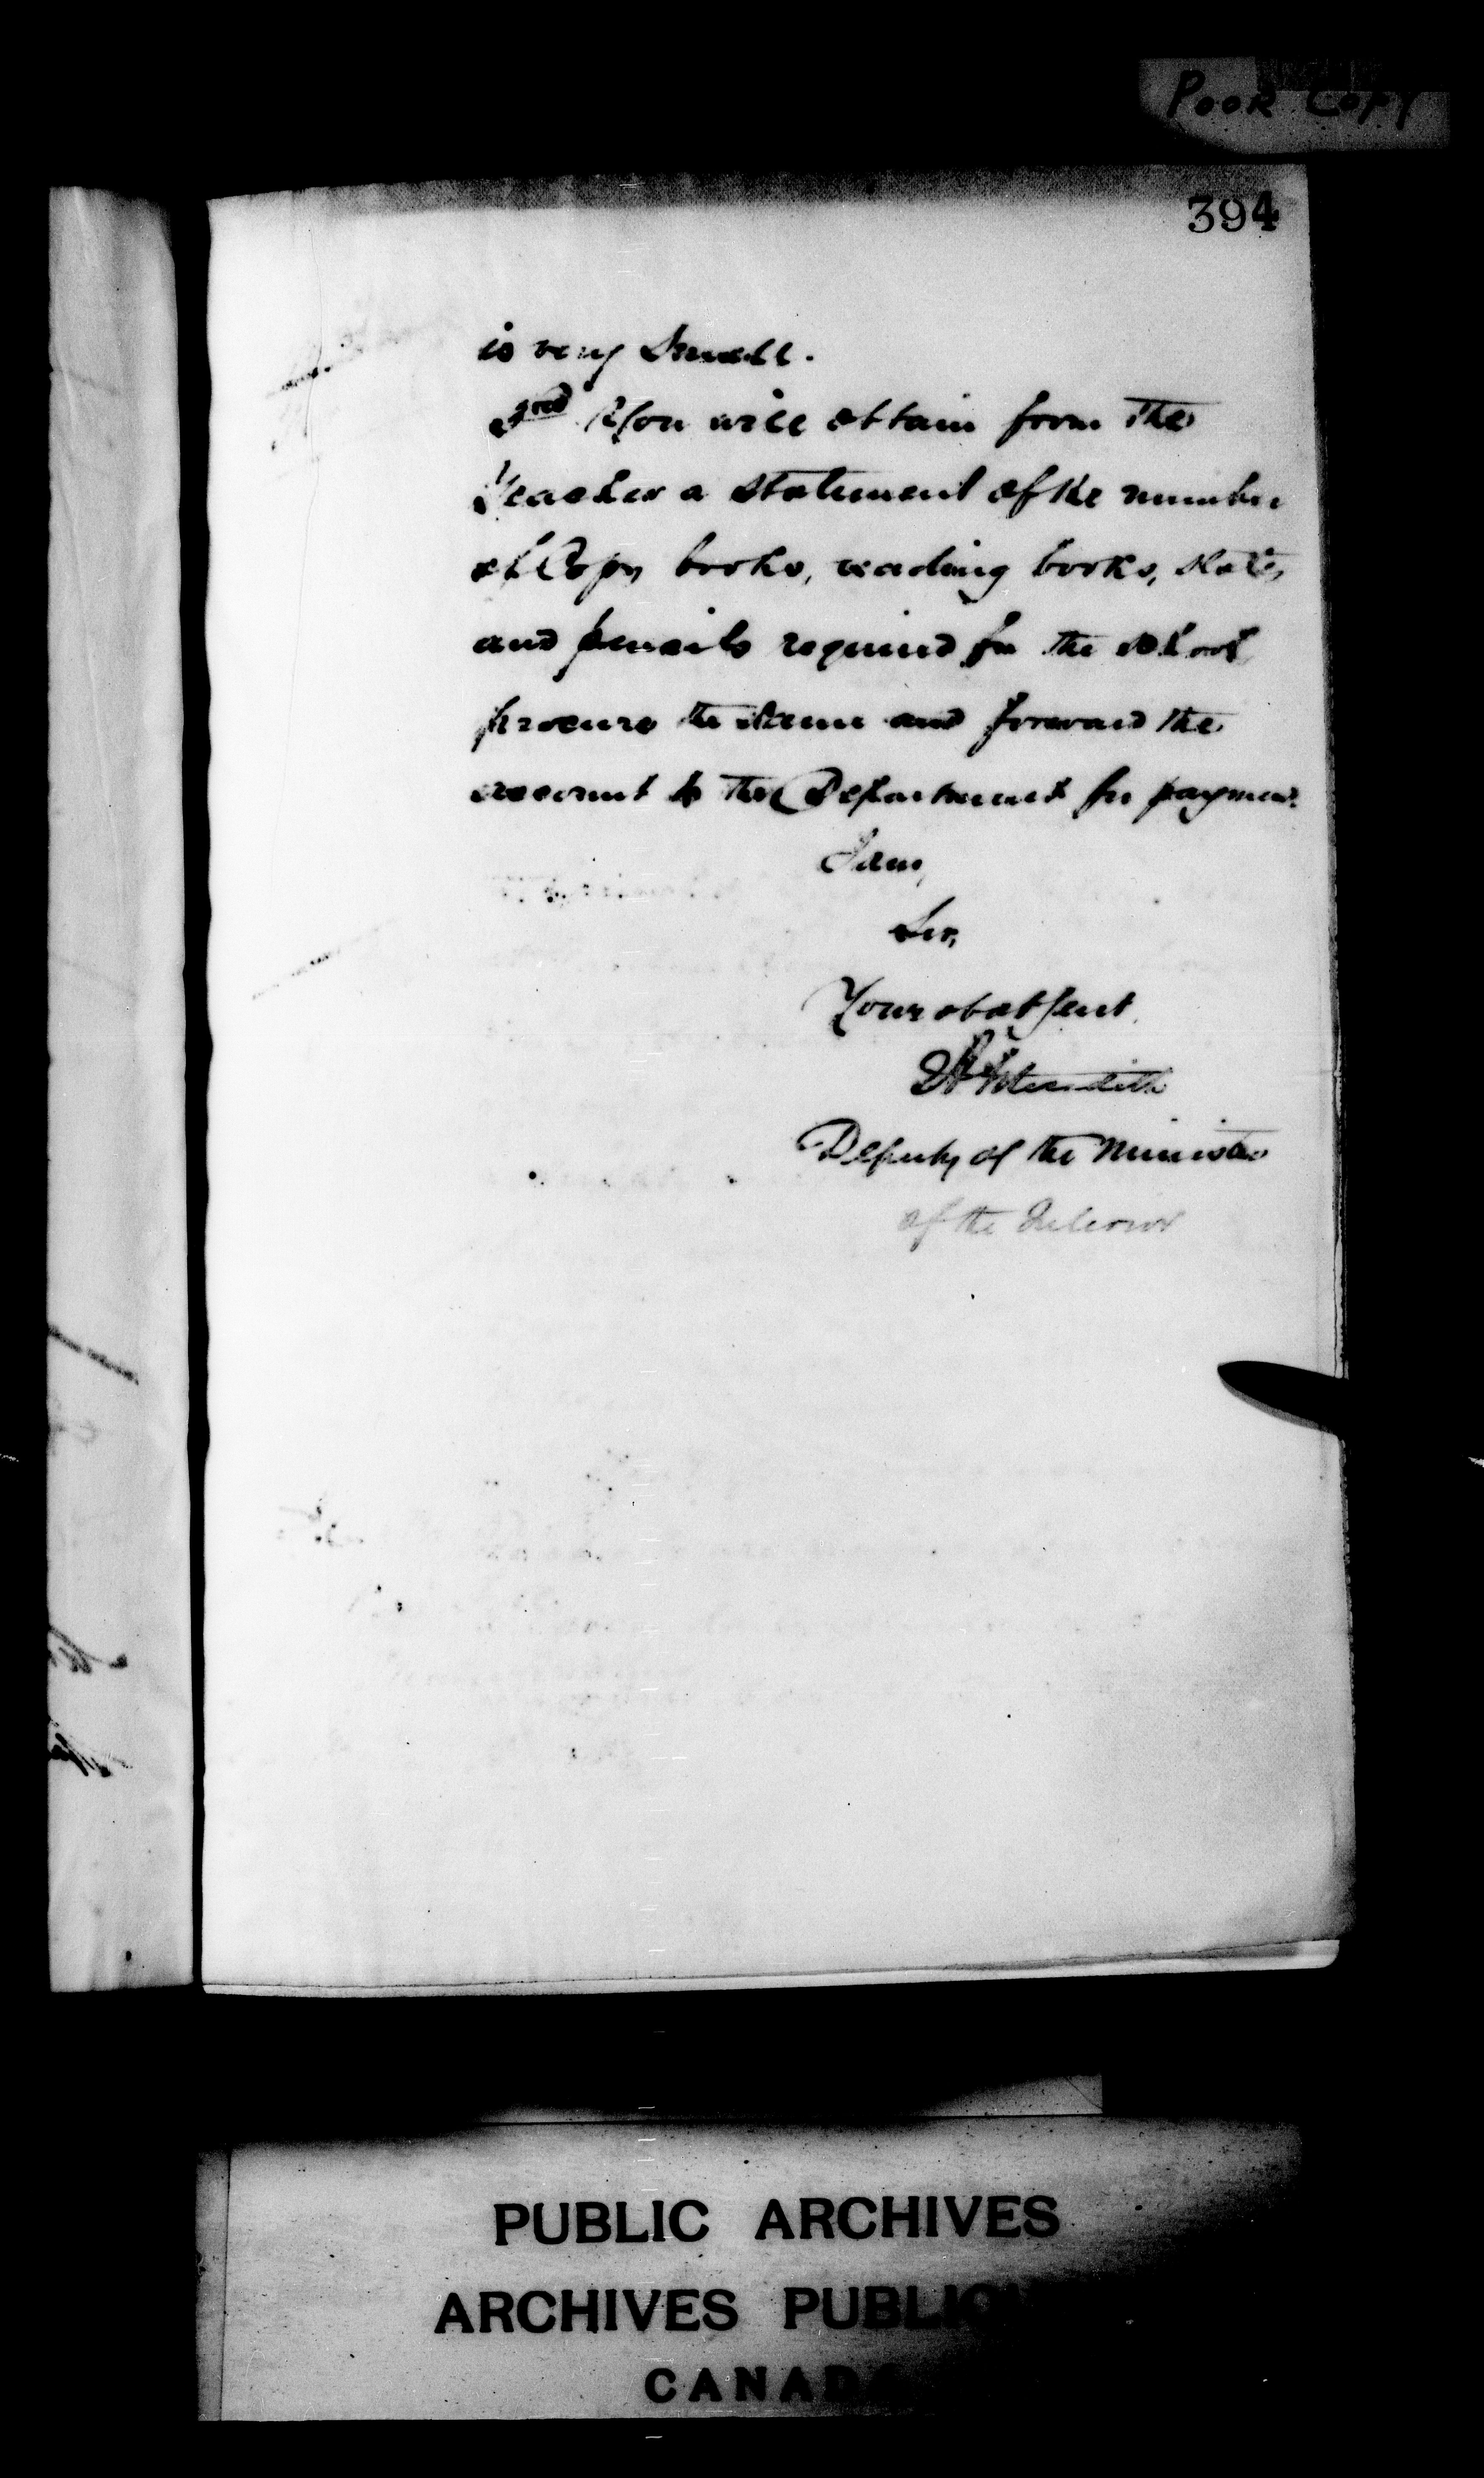 POOR COPY
394
is very small.
3rd You will obtain from the
Teacher a statement of the number
of Copy books, reading books, slates,
and pencils required for the school
procure the same and forward the
account to the Department for payment.
I am,
Sir,
Your obdt Servt.
Meredith
Deputy of the Minister
of the Interior
PUBLIC ARCHIVES
ARCHIVES PUBLIQU
CANADA